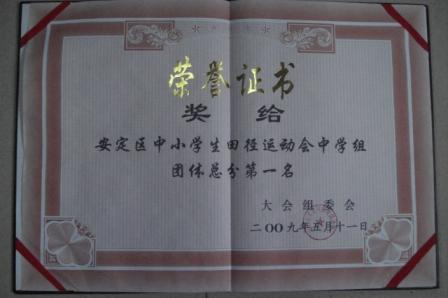 荣誉证书
奖给
安定区中小学生田径运动会中学组
团体总分第一名
大会组委会
二〇〇九年五月十一日